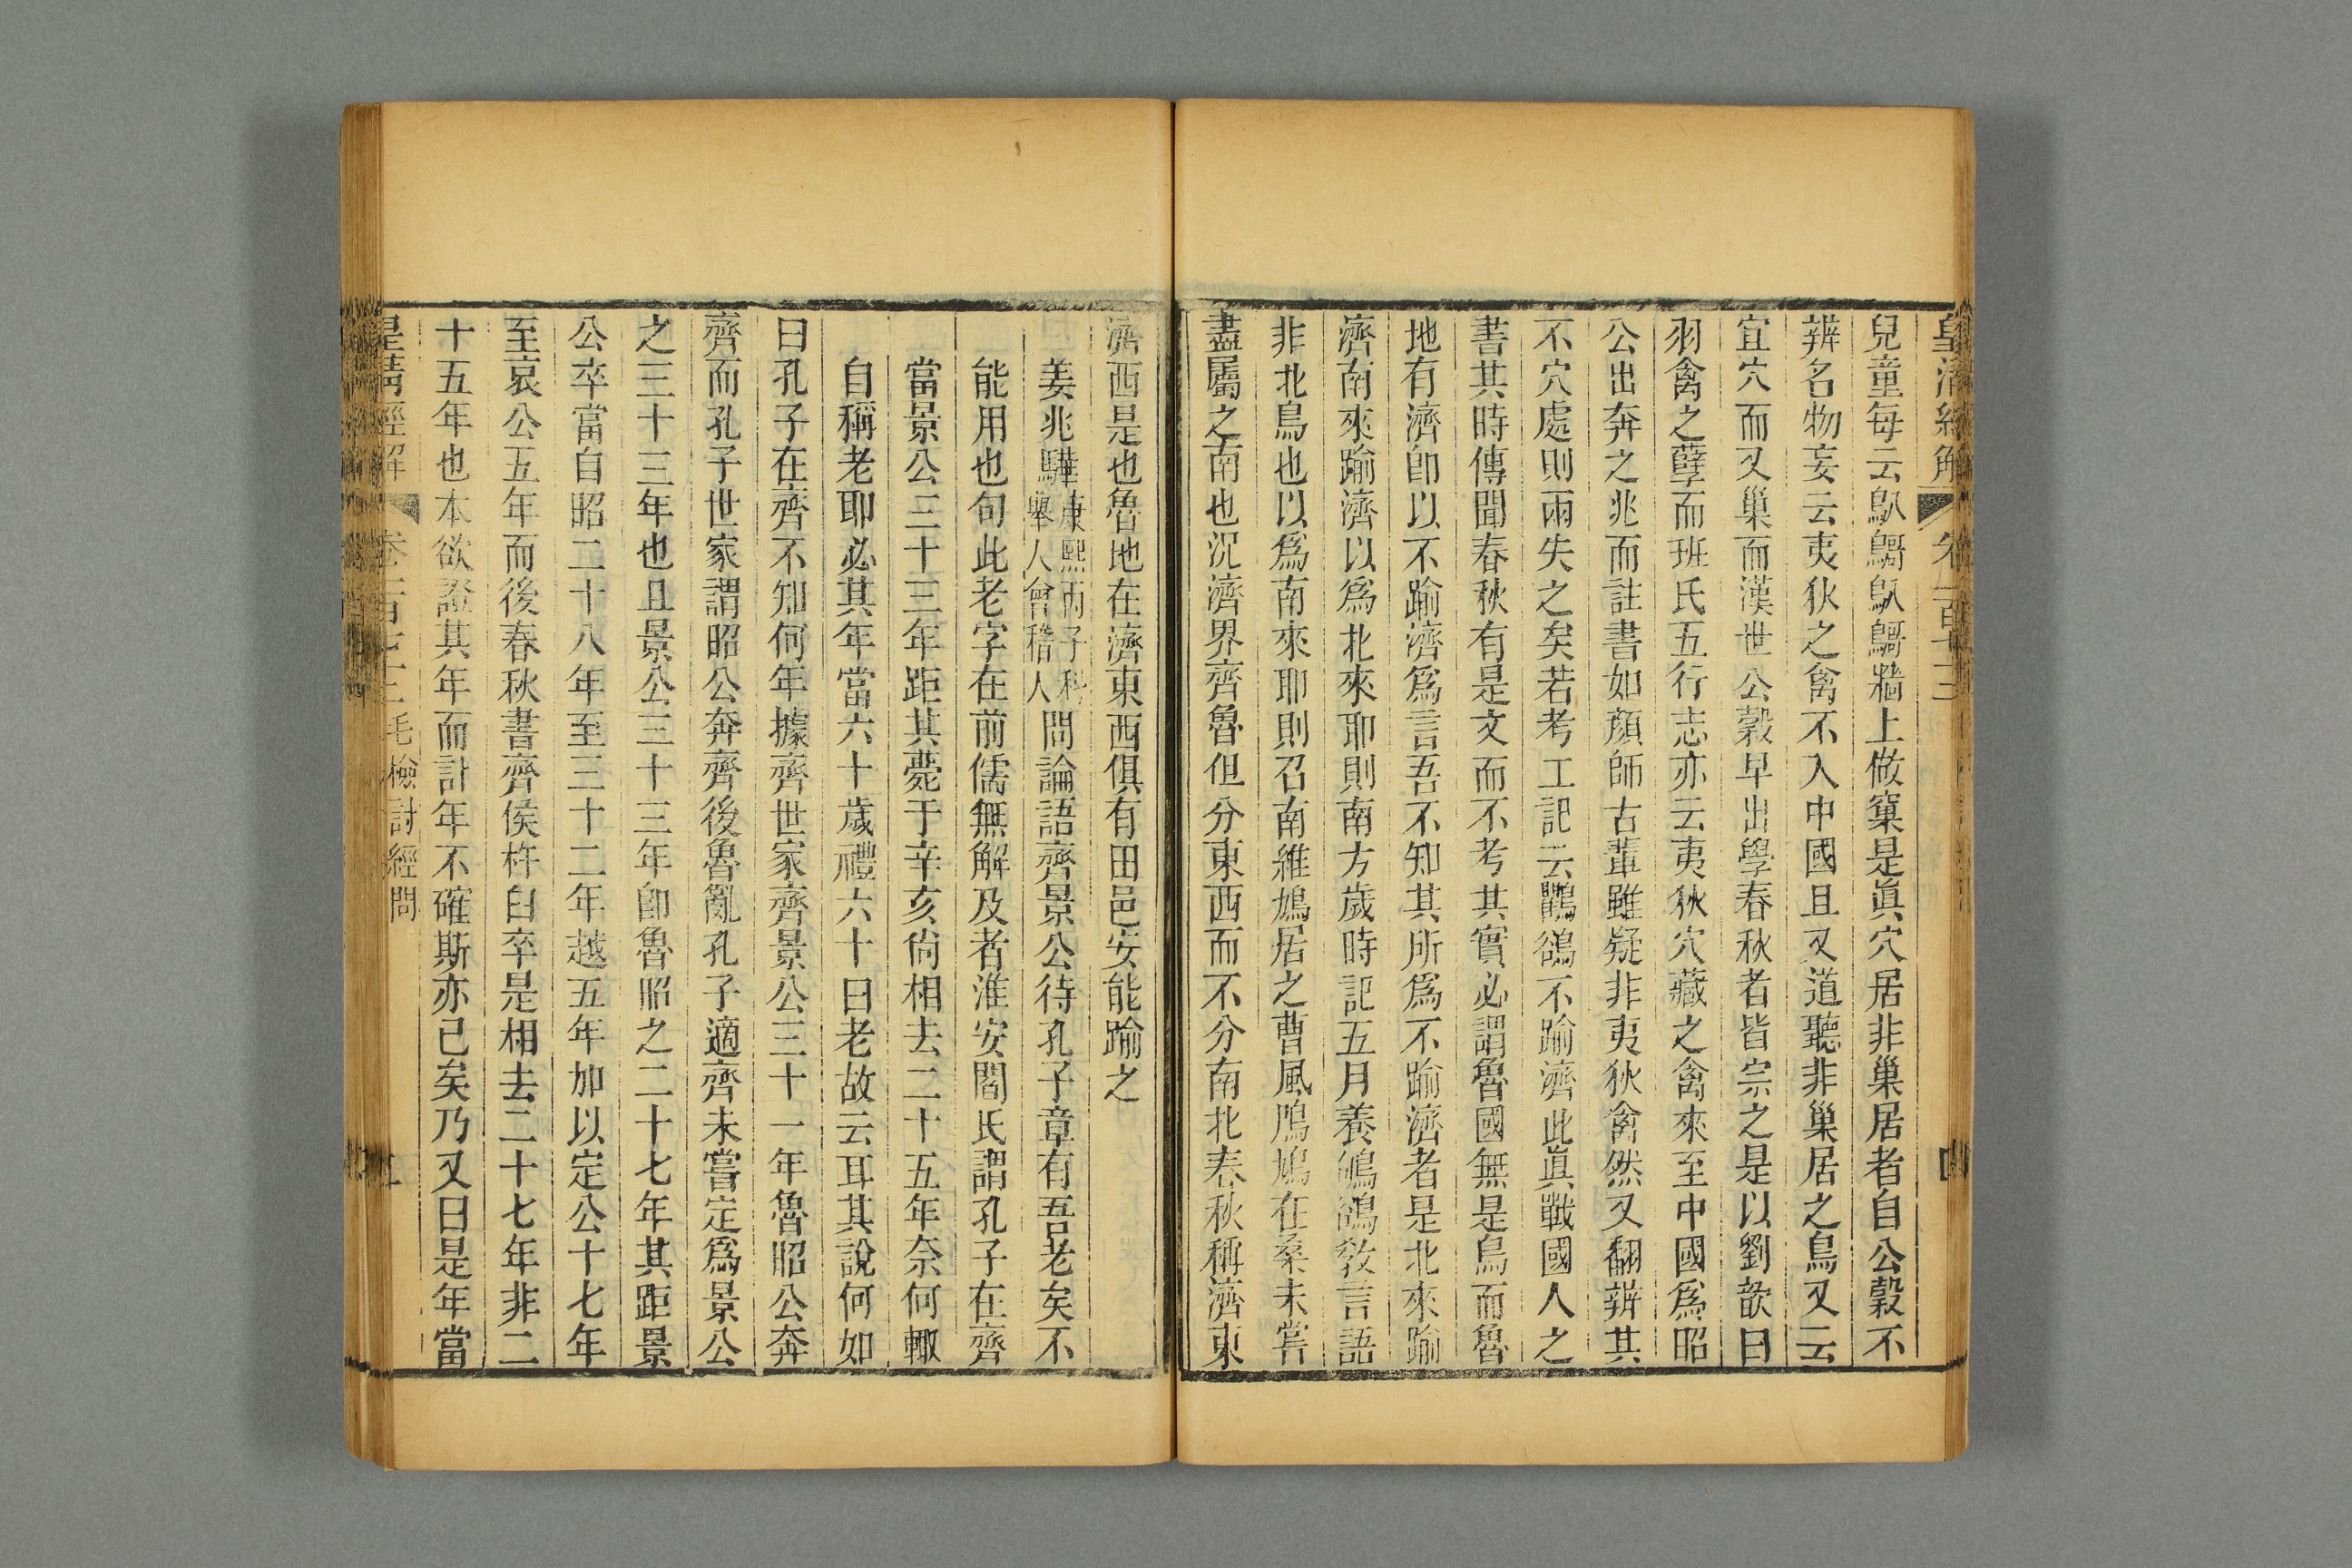 皇清經解 卷一百七十三
兒童每云鴃鷃鴃鷃牆上做窠是眞穴居非巢居者自公穀不
辨名物妄云夷狄之禽不入中國且又道聽非巢居之鳥又云
宜穴而又巢而漢世公穀早出學春秋者皆宗之是以劉歆曰
羽禽之孽而班氏五行志亦云夷狄穴藏之禽來至中國爲昭
公出奔之兆而註書如顏師古輩雖疑非夷狄禽然又翻辨其
不穴處則兩失之矣若考工記云鸜鵒不踰濟此眞戰國人之
書其時傳聞春秋有是文而不考其實必謂魯國無是鳥而魯
地有濟卽以不踰濟爲言吾不知其所爲不踰濟者是北來踰
濟南來踰濟以爲北來耶則南方歲時記五月養鴝鵒敎言語
非北鳥也以爲南來耶則召南維鳩居之曹風鳲鳩在桑未嘗
盡屬之南也沉濟界齊魯但分東西而不分南北春秋稱濟東
濟西是也魯地在濟東西俱有田邑安能踰之
姜兆驊康熙丙子科舉人會稽人問論語齊景公待孔子章有吾老矣不
能用也句此老字在前儒無解及者淮安閻氏謂孔子在齊
當景公三十三年距其薨于辛亥尙相去二十五年奈何輙
自稱老耶必其年當六十歲禮六十曰老故云耳其說何如
曰孔子在齊不知何年據齊世家齊景公三十一年魯昭公奔
齊而孔子世家謂昭公奔齊後魯亂孔子適齊未嘗定爲景公
之三十三年也且景公三十三年卽魯昭之二十七年其距景
公卒當自昭二十八年至三十二年越五年加以定公十七年
至哀公五年而後春秋書齊侯杵臼卒是相去二十七年非二
十五年也本欲證其年而計年不確斯亦已矣乃又曰是年當
皇清經解 卷一百七十三 毛檢討經問